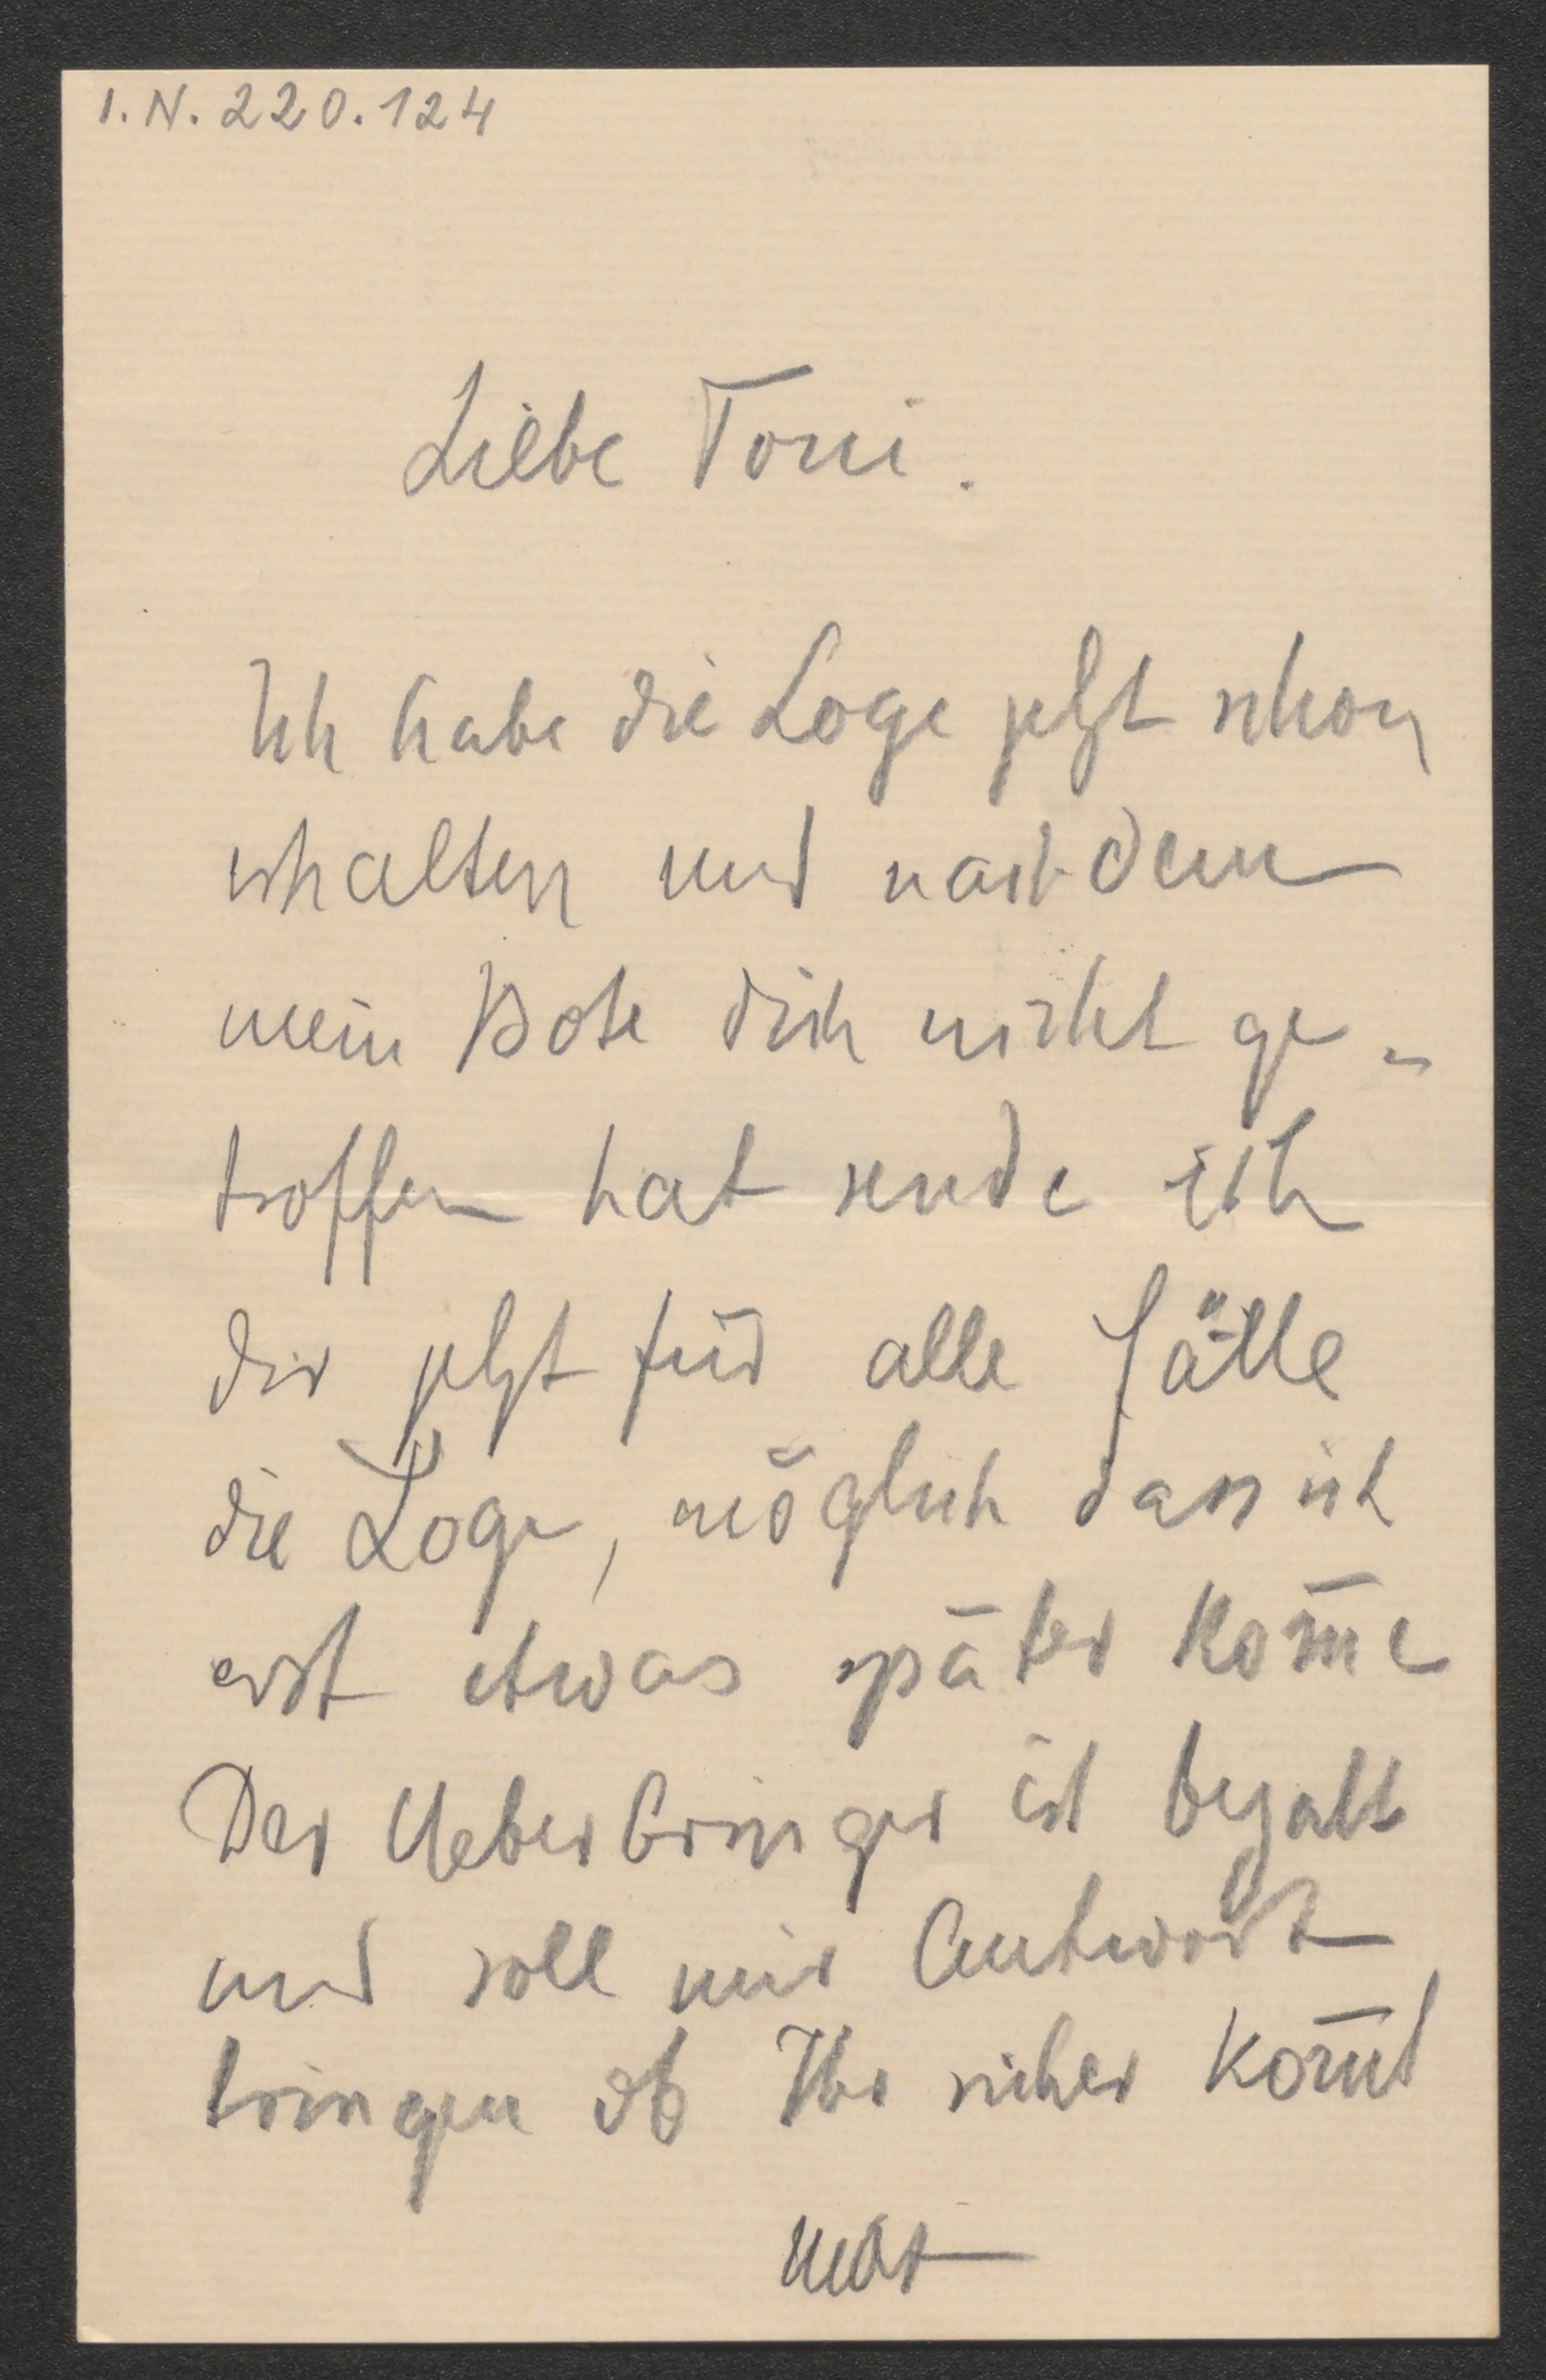 I.N. 220.124
Liebe Toni.
Ich habe die Loge jetzt schon
erhalten und nachdem
mein Bote dich nicht ge-
troffen hat sende ich
dir jetzt für alle Fälle
die Loge, möglich dass ich
erst etwas später kom̄e
Der Ueberbringer ist bezalt
und soll mir Antwort
bringen ob Ihr sicher kom̄t